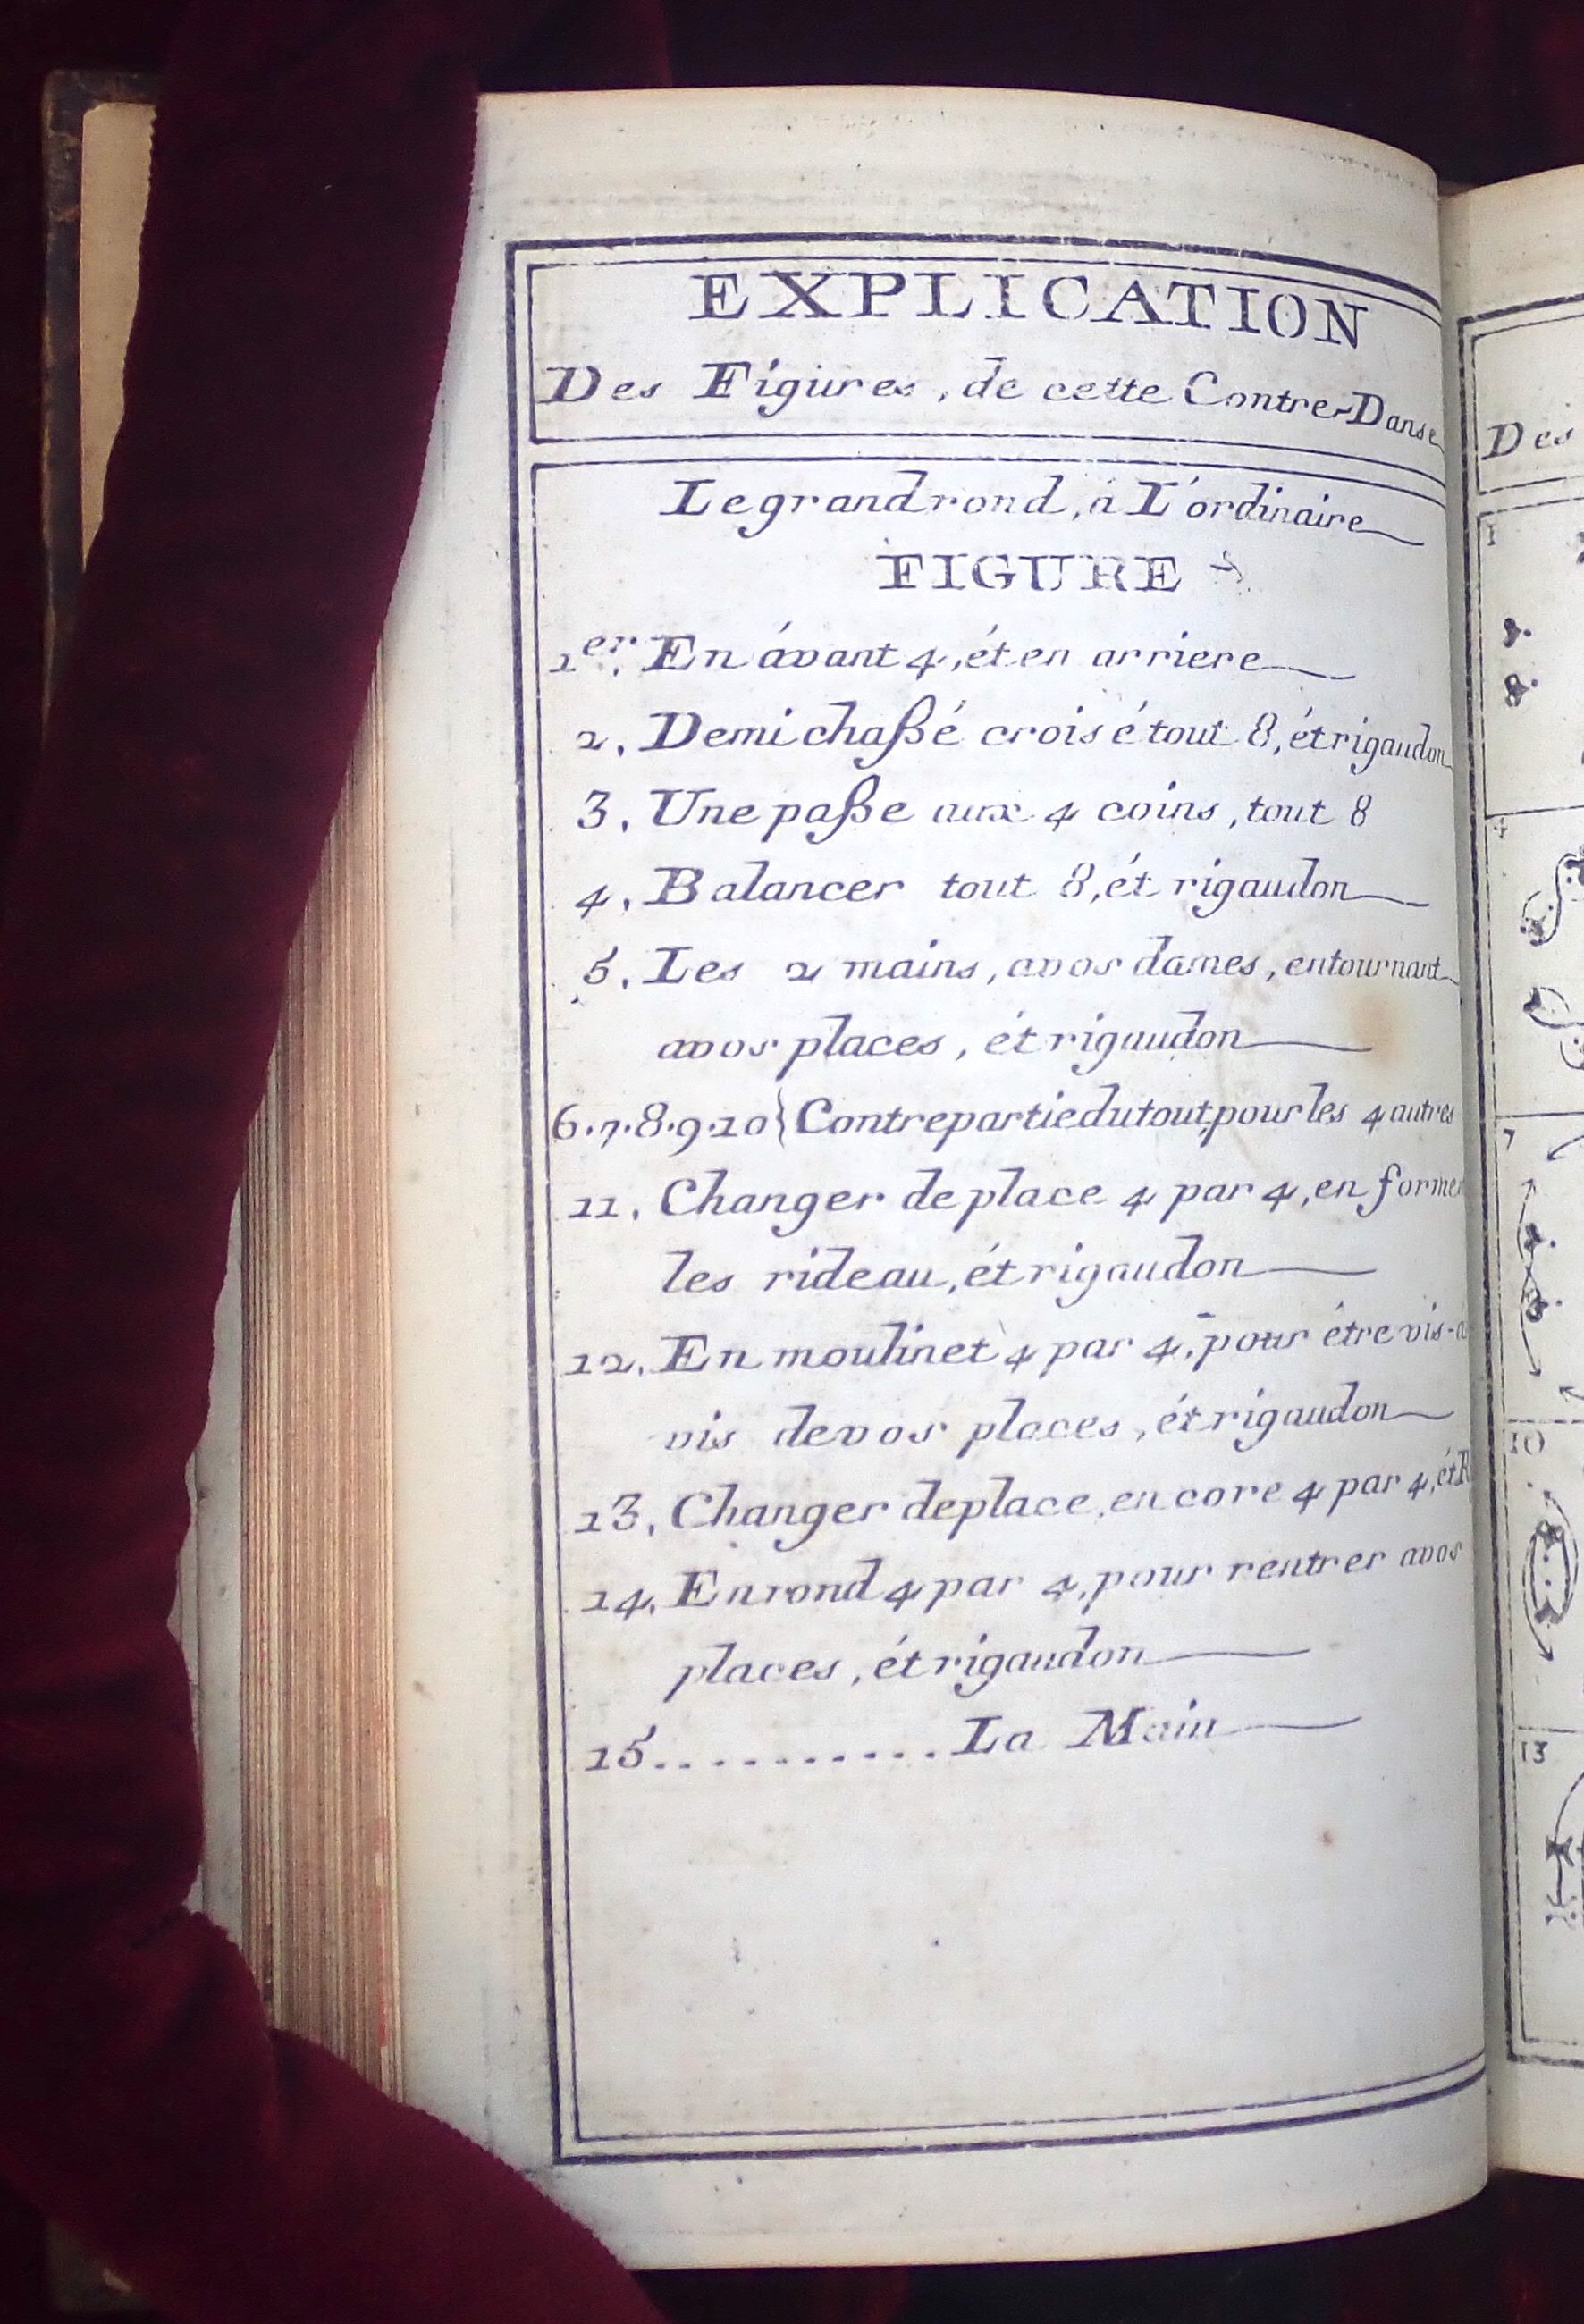 EXPLICATION
Des Figures, de cette Contre-Danse
Le grand rond, á L'ordinaire
FIGURE
1er. En ávant 4, ét en arriere
2, Demi chaßé croisé tout 8, ét rigaudon
3, Une paße aux 4 coins, tout 8
4, Balancer tout 8, ét rigaudon
5, Les 2 mains, a vos dames, en tournant
a vos places, ét rigaudon
6.7.8.9.10 { Contrepartie du tout, pour les 4 autres
11, Changer de place 4 par 4, en former
les rideau, ét rigaudon
12, En moulinet 4 par 4, pour étre vis-á
vis de vos places, ét rigaudon
13, Changer de place, encore 4 par 4, ét R
14, En rond 4 par 4, pour rentrer a vos
places, ét rigaudon
15.......... La Main
Des
1
4
7
10
13